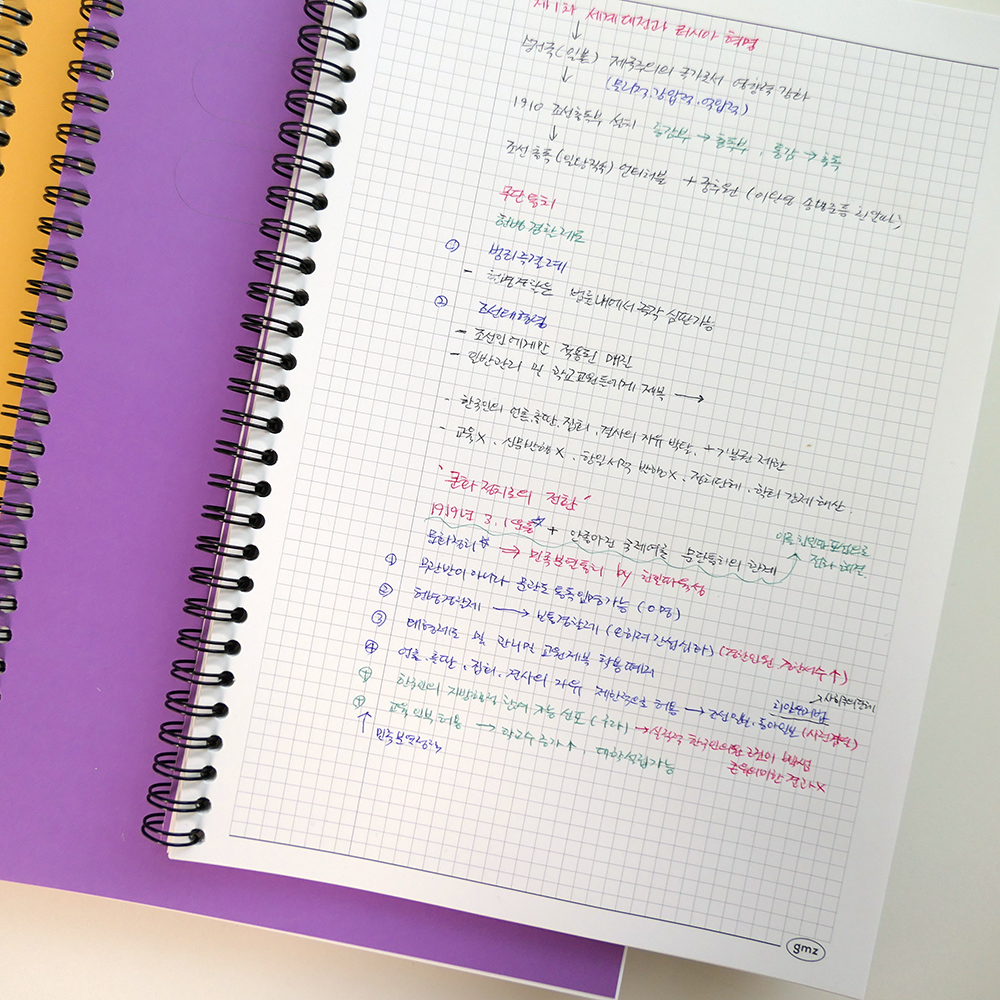 제1차 세계대전과 러시아 혁명
(일본) 제국주의의 국가로서 영향력 강화
1910 조선총독부 설치 통감부 → 총독부, 통감 → 총독
조선총독(일왕직속) + 중추원 (이완용 송병준등 친일파)
무단통치
헌병경찰제도
① 범죄즉결례
- 헌병경찰은 법률내에서 즉각 심판가능
② 조선태형령
- 조선인에게만 적용된 매질
- 일반관리 및 학교교원들에게 제복 →
- 한국인의 언론,출판,집회,결사의 자유 박탈, + 기본권 제한
- 교육X, 신문발행X, 항일서적 발행X, 정치단체, 학회 강제해산
"문화정치로의 전환"
1919년 3.1운동 + 국제여론 무단통치의 한계
문화정치 → 민족분열통치 by 친일파육성
① 무관만이 아니라 문관도 총독임명가능 (0명)
② 헌병경찰제 → 보통경찰제 (오히려 간섭심화) (경찰인원, 경찰서수↑)
③ 태형제도 및 관리 교원제복 착용폐지
④ 언론,출판,집회,결사의 자유 제한적으로 허용 → 조선일보,동아일보 (사전검열)
치안유지법
한국인의 지방행정 참여 가능 선포
교육 일부 허용 → 학교수증가↑ 대학설립가능
↑ 민족분열정책
결과X
gmz